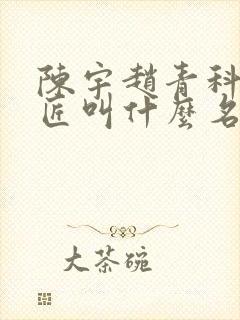 陳宇趙青科
匠叫什麼名
大茶碗